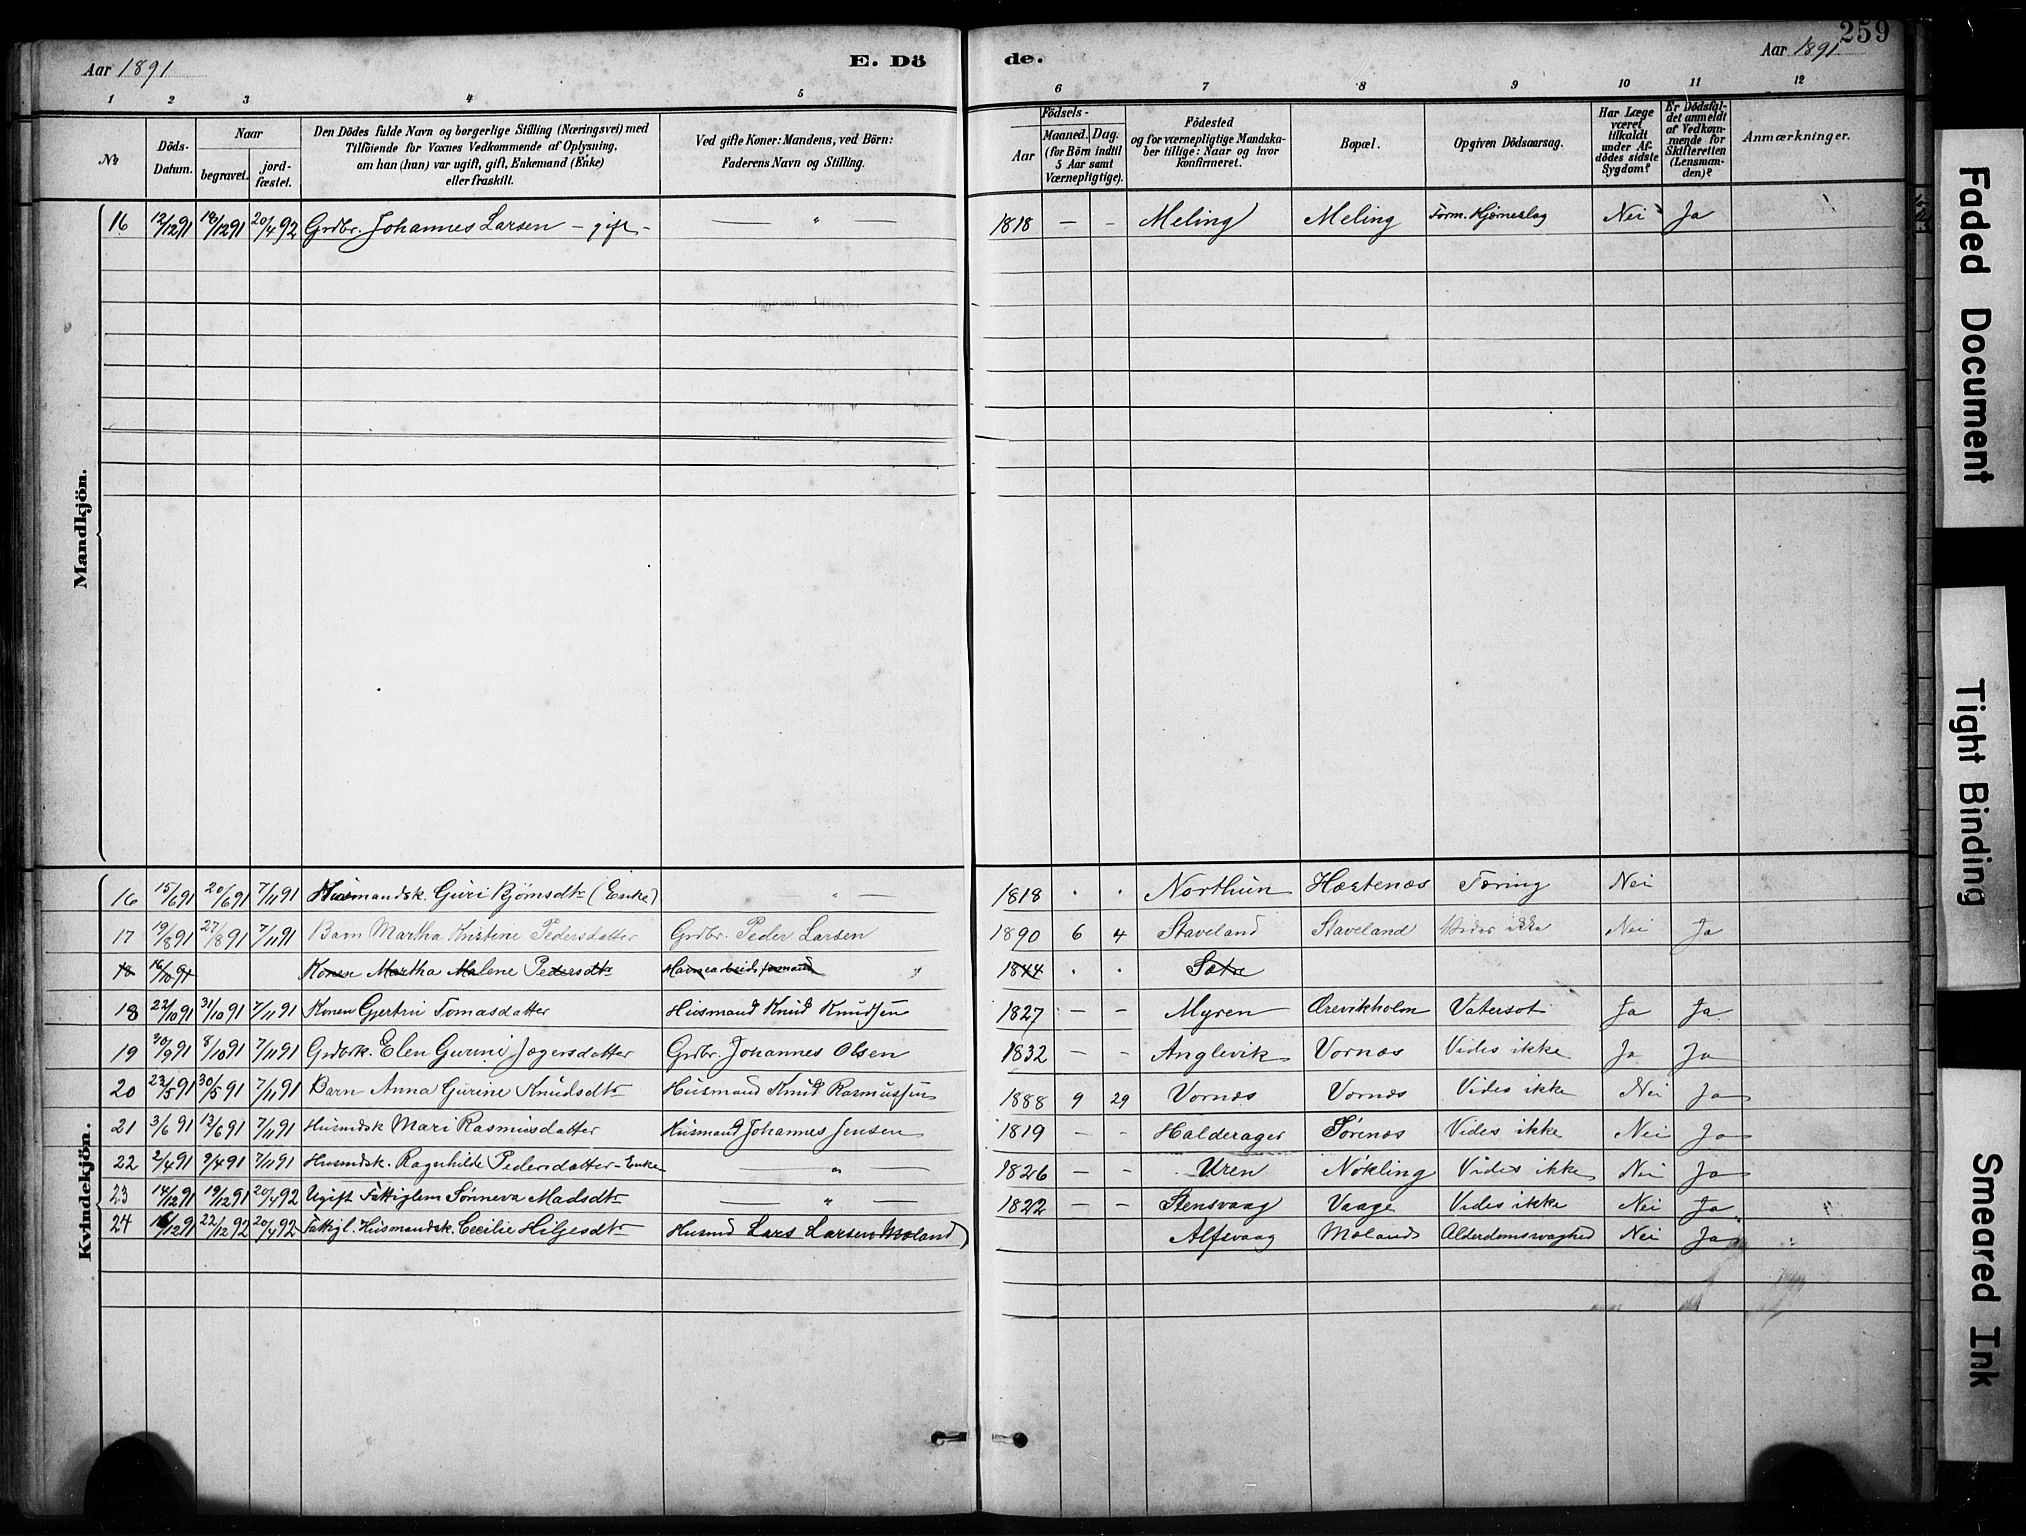 259
Aar 1891
E. Dö
de.
Aar 1891
1 2 3 4 5 6 7 8 9 10 11 12
No
Döds-Datum.
Naar
begravet.
jord-fæstet.
Den Dödes fulde Navn og borgerlige Stilling (Næringsvei) med
Tilföiende for Voxnes Vedkommende af Oplysning,
om han (hun) var ugift, gift, Enkemand (Enke)
eller fraskilt.
Ved gifte Koner: Mandens, ved Börn:
Faderens Navn og Stilling.
Födsels-
Aar
Maaned. Dag.
(for Börn indtil
5 Aar samt
Værnepligtige).
Födested
og for værnepligtige Mandska-
ber tillige: Naar og hvor
konfirmeret.
Bopæl.
Opgiven Dödsaarsag.
Har Læge
været
tilkaldt
under Af-
dödes sidste
Sygdom?
Er Dödsfal-
det anmeldt
af Vedkom-
mende for
Skifteretten
(Lensman-
den)?
Anmærkninger.
Mandkjön.
16 12/12 91 19/12 91 20/4 92 Grdbr. Johannes Larsen - gift - — " — 1818 - - Meling Meling Form. Hjerneslag Nei Ja
Kvindekjön.
16 15/6 91 20/6 91 7/11 91 Husmandsk. Guri Bjørnsdtr (Enke) " — 1818 . . Northun Hærtenæs Tæring Nei
17 19/8 91 27/8 91 7/11 91 Barn Martha Kristine Pedersdatter Grdbr. Peder Larsen 1890 6 4 Staveland Staveland Vides ikke Nei Ja
18 16/10 91 Konen Martha Malene Pedersdtr 1844 . . Sætre
18 22/10 91 31/10 91 7/11 91 Konen Gjertru Tomasdatter Husmand Knud Knudsen 1827 - - Myren Ørevikholm Vatersot Ja Ja
19 30/9 91 8/10 91 7/11 91 Grdbrk. Elen Gurine Jægersdatter Grdbr. Johannes Olsen 1832 - - Anglevik Vornæs Vides ikke Ja Ja
20 23/5 91 30/5 91 7/11 91 Barn Anna Gurine Knudsdtr Husmand Knud Rasmussen 1888 9 29 Vornæs Vornæs Vides ikke Nei Ja
21 3/6 91 13/6 91 7/11 91 Husmdsk Mari Rasmusdatter Husmand Johannes Jensen 1819 - - Halderager Sørenæs Vides ikke Nei Ja
22 2/4 91 9/4 91 7/11 91 Husmdsk. Ragnhilde Pedersdatter - Enke — " — 1826 - - Uren Nøkling Vides ikke Nei Ja
23 14/12 91 19/12 91 20/4 92 Ugift Fattiglem Sønneva Madsdtr — " — 1822 - - Stensvaag Vaage Vides ikke Nei Ja
24 16/12 91 22/12 92 20/4 92 Fattigl. Husmandsk. Cecilie Hilgesdtr Husmd Lars Larsen Moland) Alfsvaag Moland Alderdomssvaghed Nei Ja
Faded Document
Tight Binding
Smeared Ink